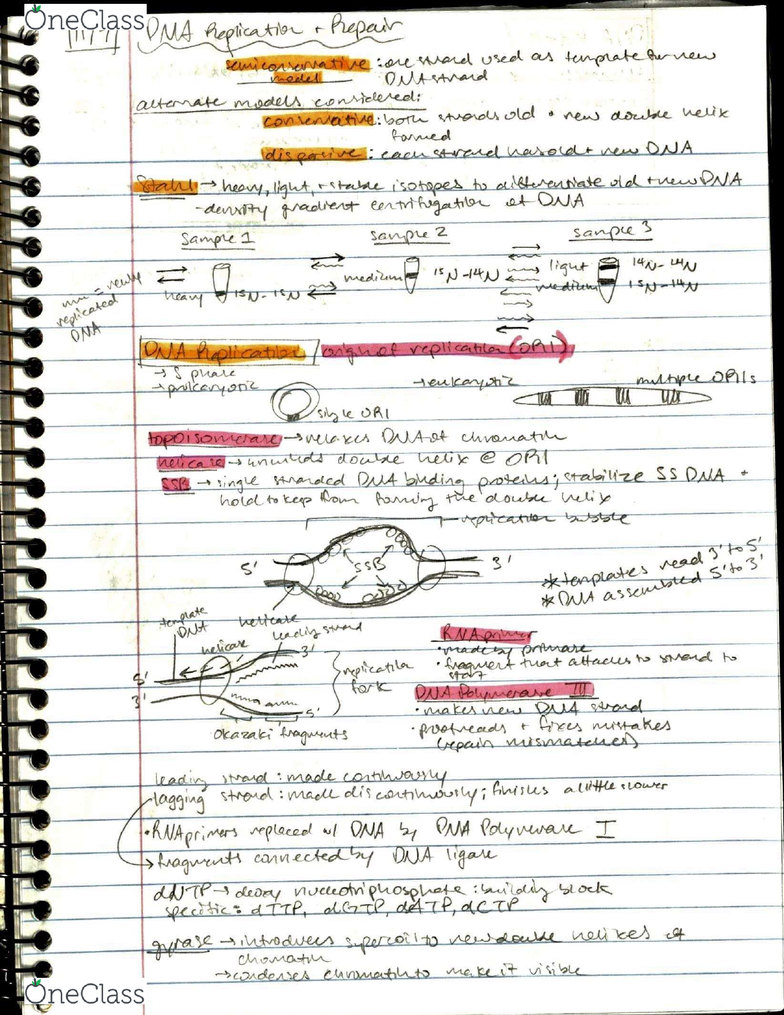 OneClass
DNA Replication + Repair
semiconservative model : one strand used as template for new
DNA strand
alternate models considered:
conservative : both strands old + new double helix
formed
dispersive : each strand has old + new DNA
Stahl → heavy, light, + stable isotopes to differentiate old + new DNA
- density gradient centrifugation of DNA
Sample 1
Sample 2
Sample 3
heavy 15N-15N
medium 15N-14N
light 14N-14N
medium 15N-14N
= newly
replicated
DNA
DNA Replication / origin of replication (ORI)
→ S phase
→ prokaryotic
single ORI
→ eukaryotic
multiple ORIs
topoisomerase → relaxes DNA of chromatin
helicase → unwinds double helix @ ORI
SSB → single stranded DNA binding proteins; stabilize SS DNA +
hold to keep from forming the double helix
replication bubble
5' SSB 3'
helicase
* templates read 3' to 5'
* DNA assembled 5' to 3'
template
DNA
helicase
leading strand
5' 3'
3' 5'
replication
fork
Okazaki fragments
RNA primer
· made by primase
· fragment that attaches to strand to
start
DNA Polymerase III
· makes new DNA strand
· proofreads + fixes mistakes
(repair mismatches)
leading strand : made continuously
lagging strand : made discontinuously; finishes a little slower
· RNA primers replaced w/ DNA by DNA Polymerase I
→ fragments connected by DNA ligase
dNTP → deoxy nucleotriphosphate : building block
specific : dTTP, dGTP, dATP, dCTP
gyrase → introduces supercoil to new double helixes of
chromatin
→ condenses chromatin to make it visible
OneClass